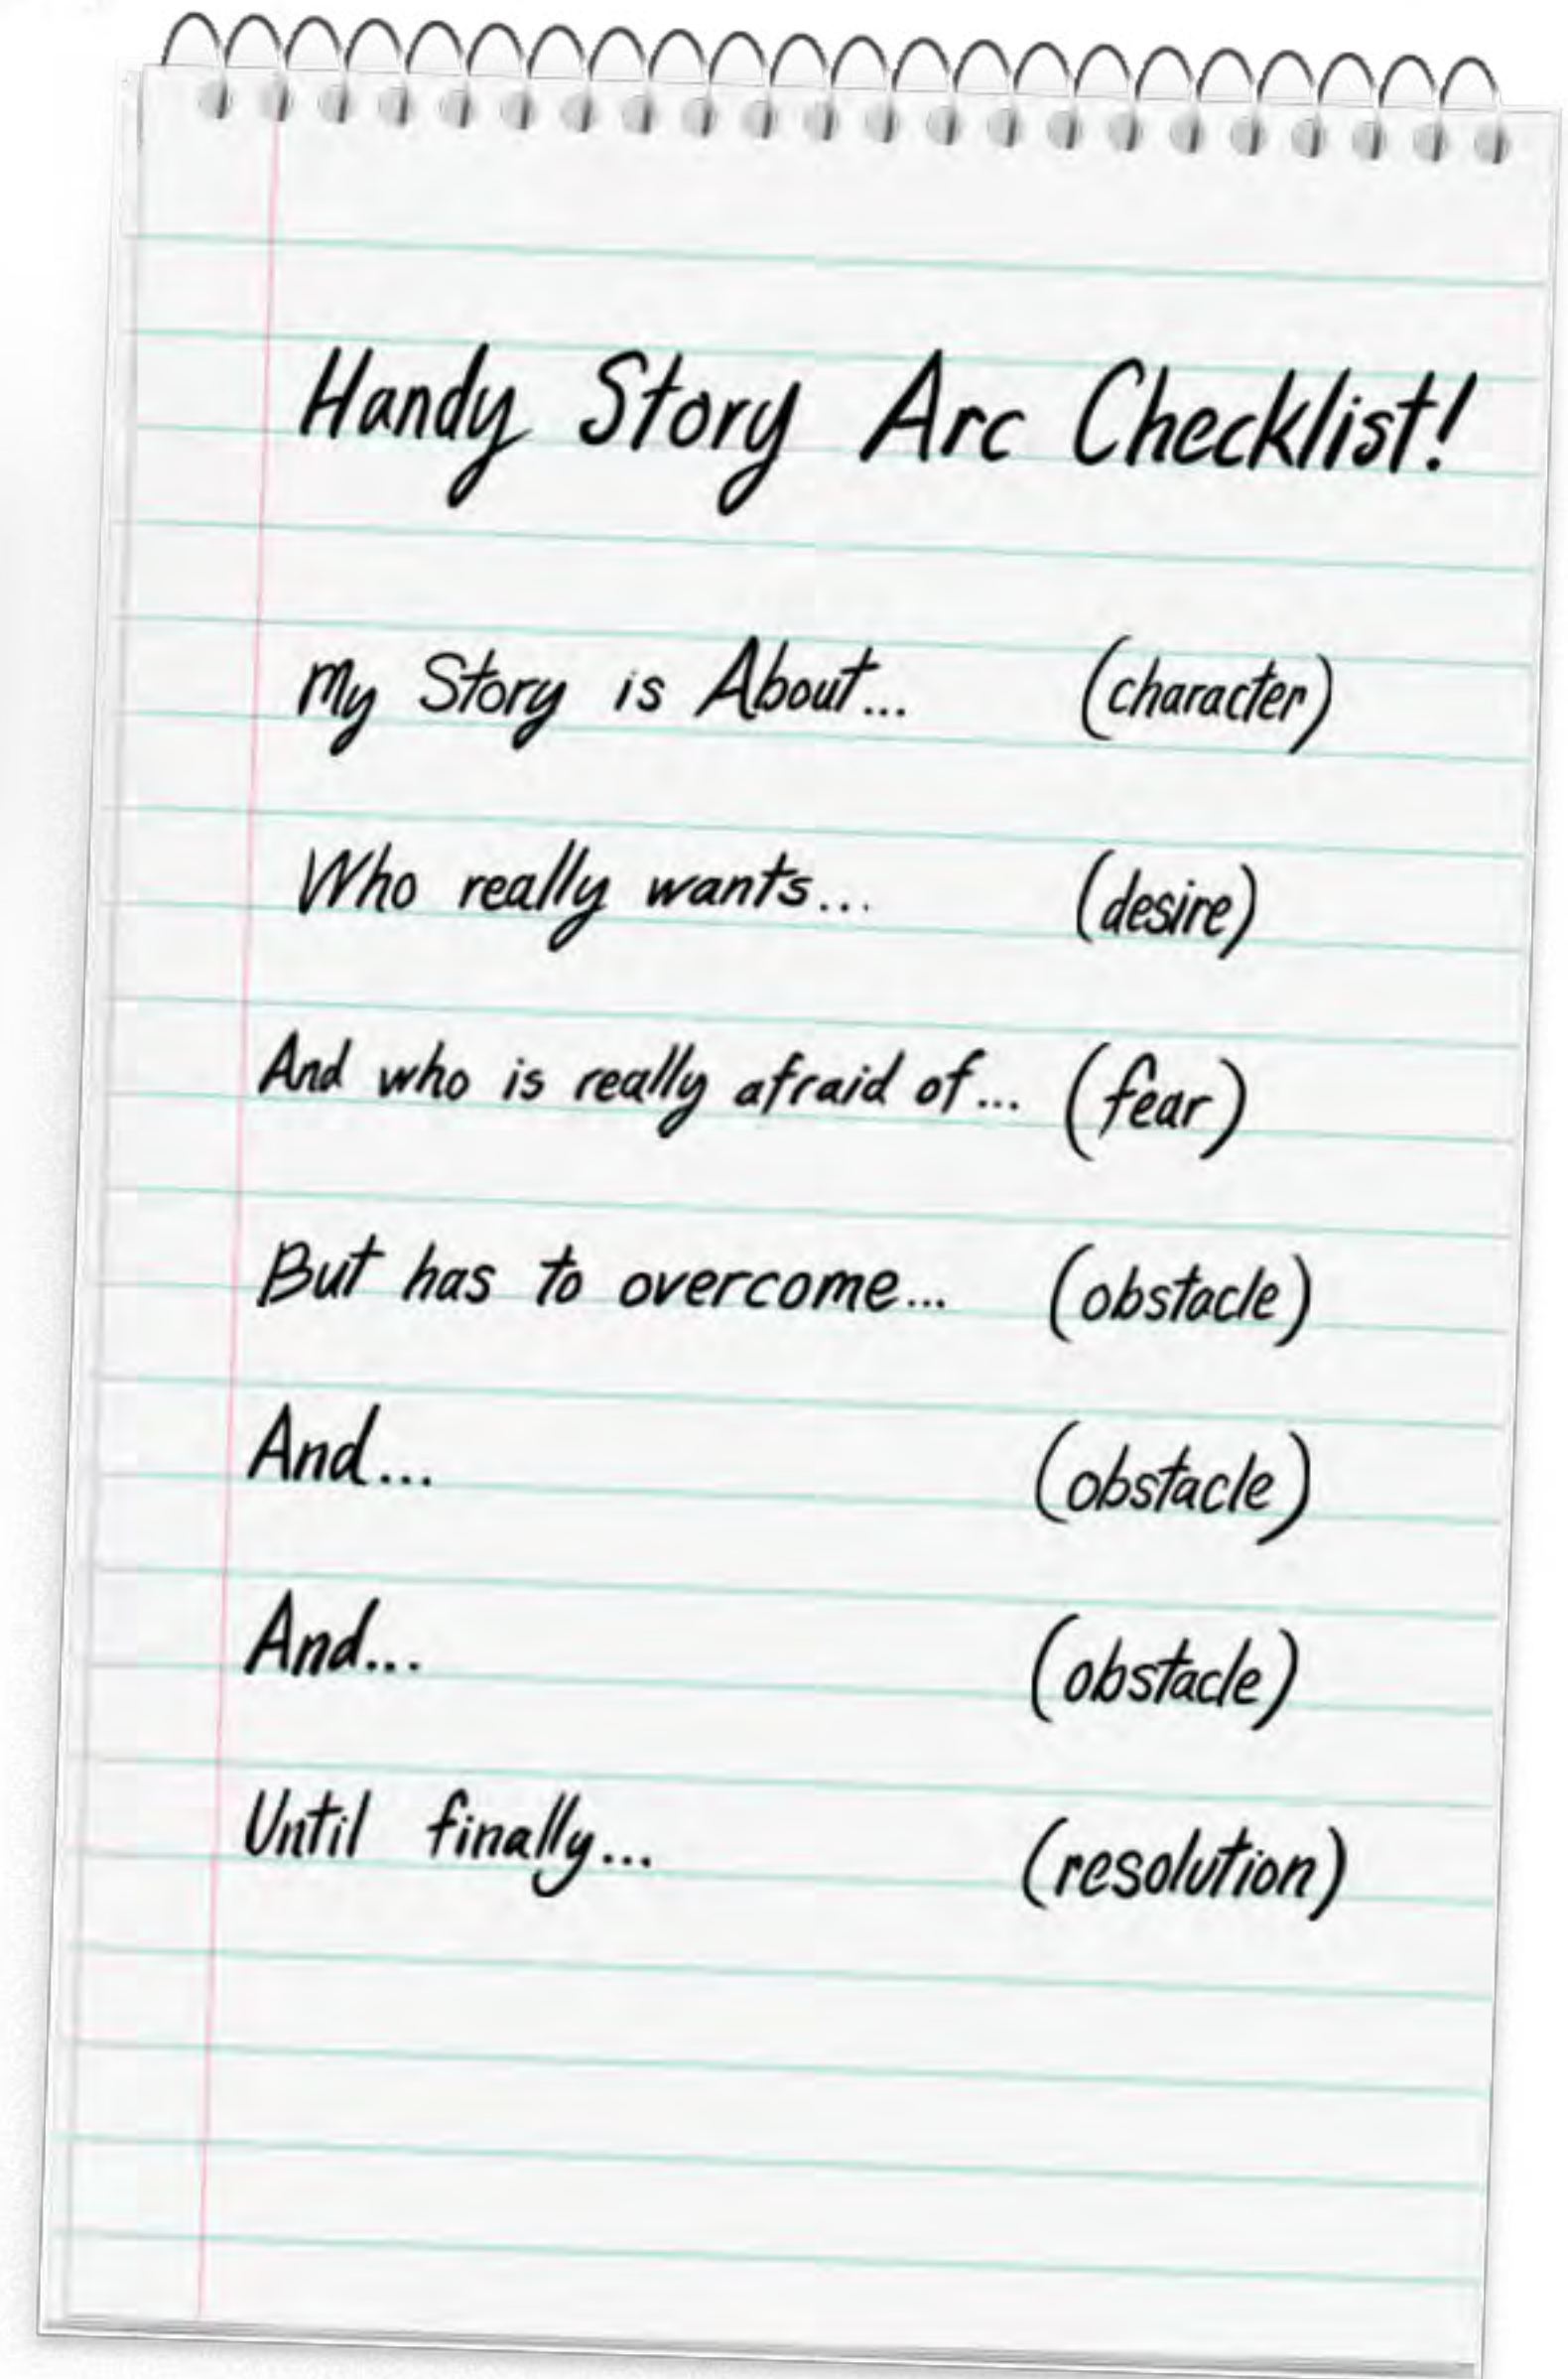 Handy Story Arc Checklist!
My Story is About... (character)
Who really wants... (desire)
And who is really afraid of... (fear)
But has to overcome... (obstacle)
And... (obstacle)
And... (obstacle)
Until finally... (resolution)